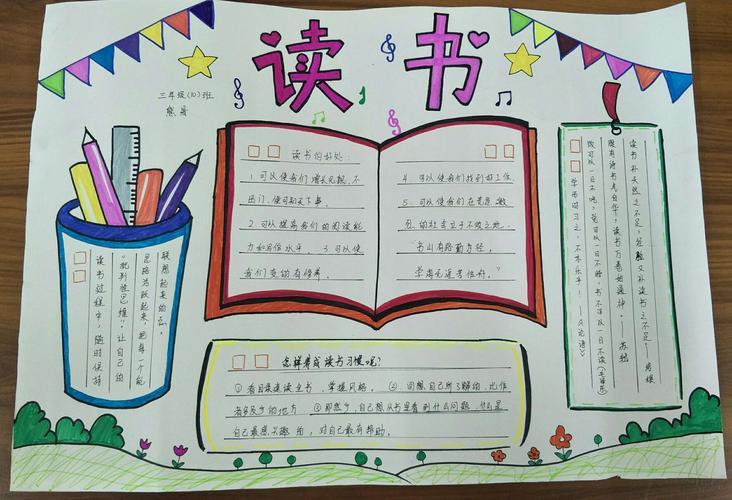 读书
三年级(10)班
读书的好处:
1.可以使我们增长见识,不
出门,便可知天下事。
2.可以提高我们的阅读能
力和写作水平。 3.可以使
我们变的有修养。
4.可以使我们找到好工作
5.可以使我们在竞争激
烈的社会立于不败之地。
“书山有路勤为径,
学海无涯苦作舟。”
读书过程中,随时保持
“批判性思维”,让自己的
思路活跃起来,把每一个能
联想起来的点。
怎样养成读书习惯呢?
①看目录速读全书,掌握风格。 ②回想自己所了解的,比作
者多及少的地方 ③那些多,自己想从书里看到什么问题,什么是
自己最感兴趣的,对自己最有帮助。
读书补天然之不足,经验又补读书之不足!
腹有诗书气自华,读书万卷始通神。 苏轼
饭可以一日不吃,觉可以一日不睡,书不可以一日不读
学而时习之,不亦乐乎!——《论语》